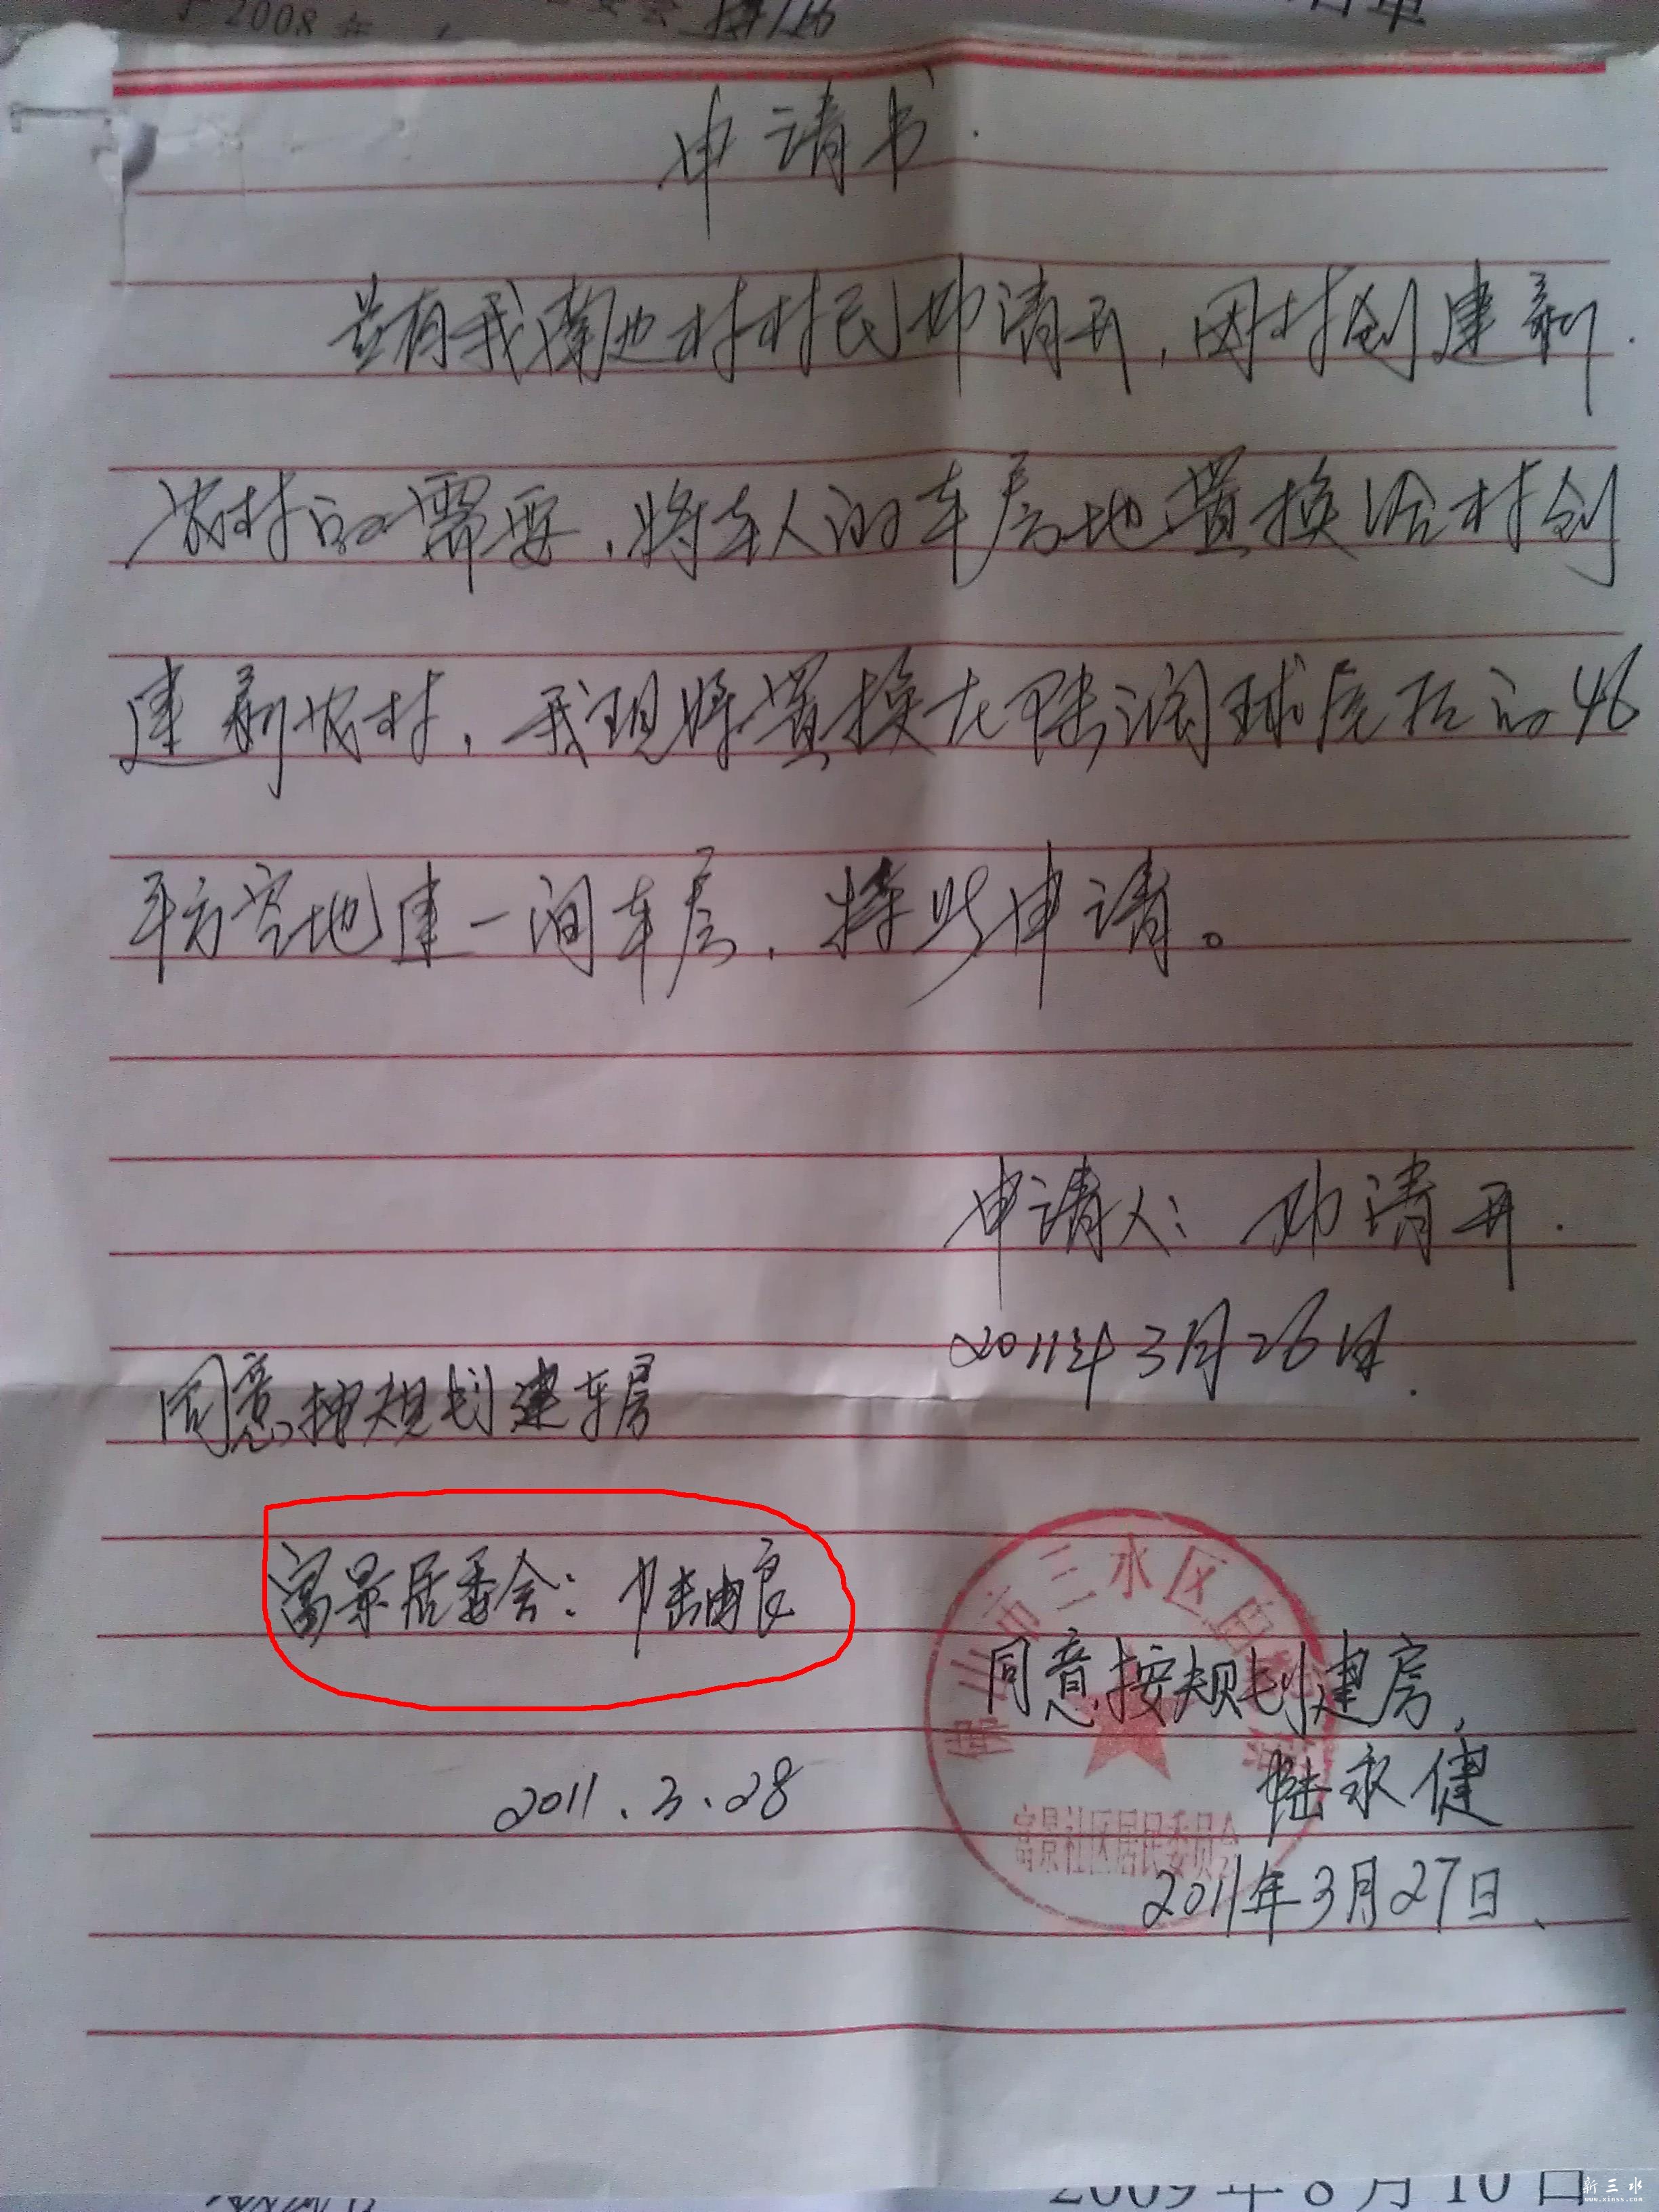 2008年
申请书.
兹有我南边村村民 请开,因村创建新
农村的需要,将本人的车房地置换给村创
建新农村,我现将置换在陆润球房后的46
平方空地建一间车房,特此申请。
申请人: 请开.
2011年3月26日.
同意按规划建车房
富景居委会:陆由良
2011.3.28
佛山市三水区西南街
富景社区居民委员会
同意按规划建房,
陆永健
2011年3月27日
2009年8月10日
新三水
www.xinss.com